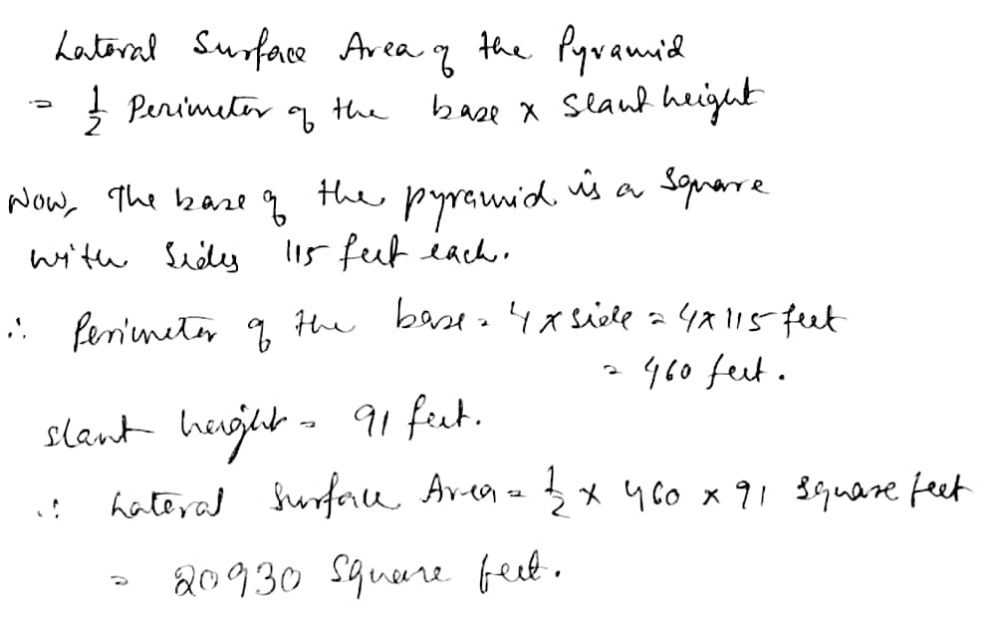 Lateral Surface Area of the Pyramid
= 1/2 Perimeter of the base × Slant height
Now, The base of the pyramid is a Square
with Sides 115 feet each.
∴ Perimeter of the base = 4 × side = 4×115 feet
= 460 feet.
slant height = 91 feet.
∴ Lateral Surface Area = 1/2 × 460 × 91 square feet
= 20930 Square feet.